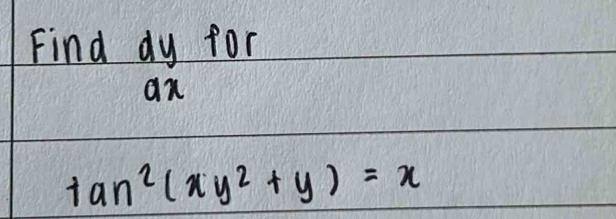 Find dy for
dx
tan²(xy² + y) = x